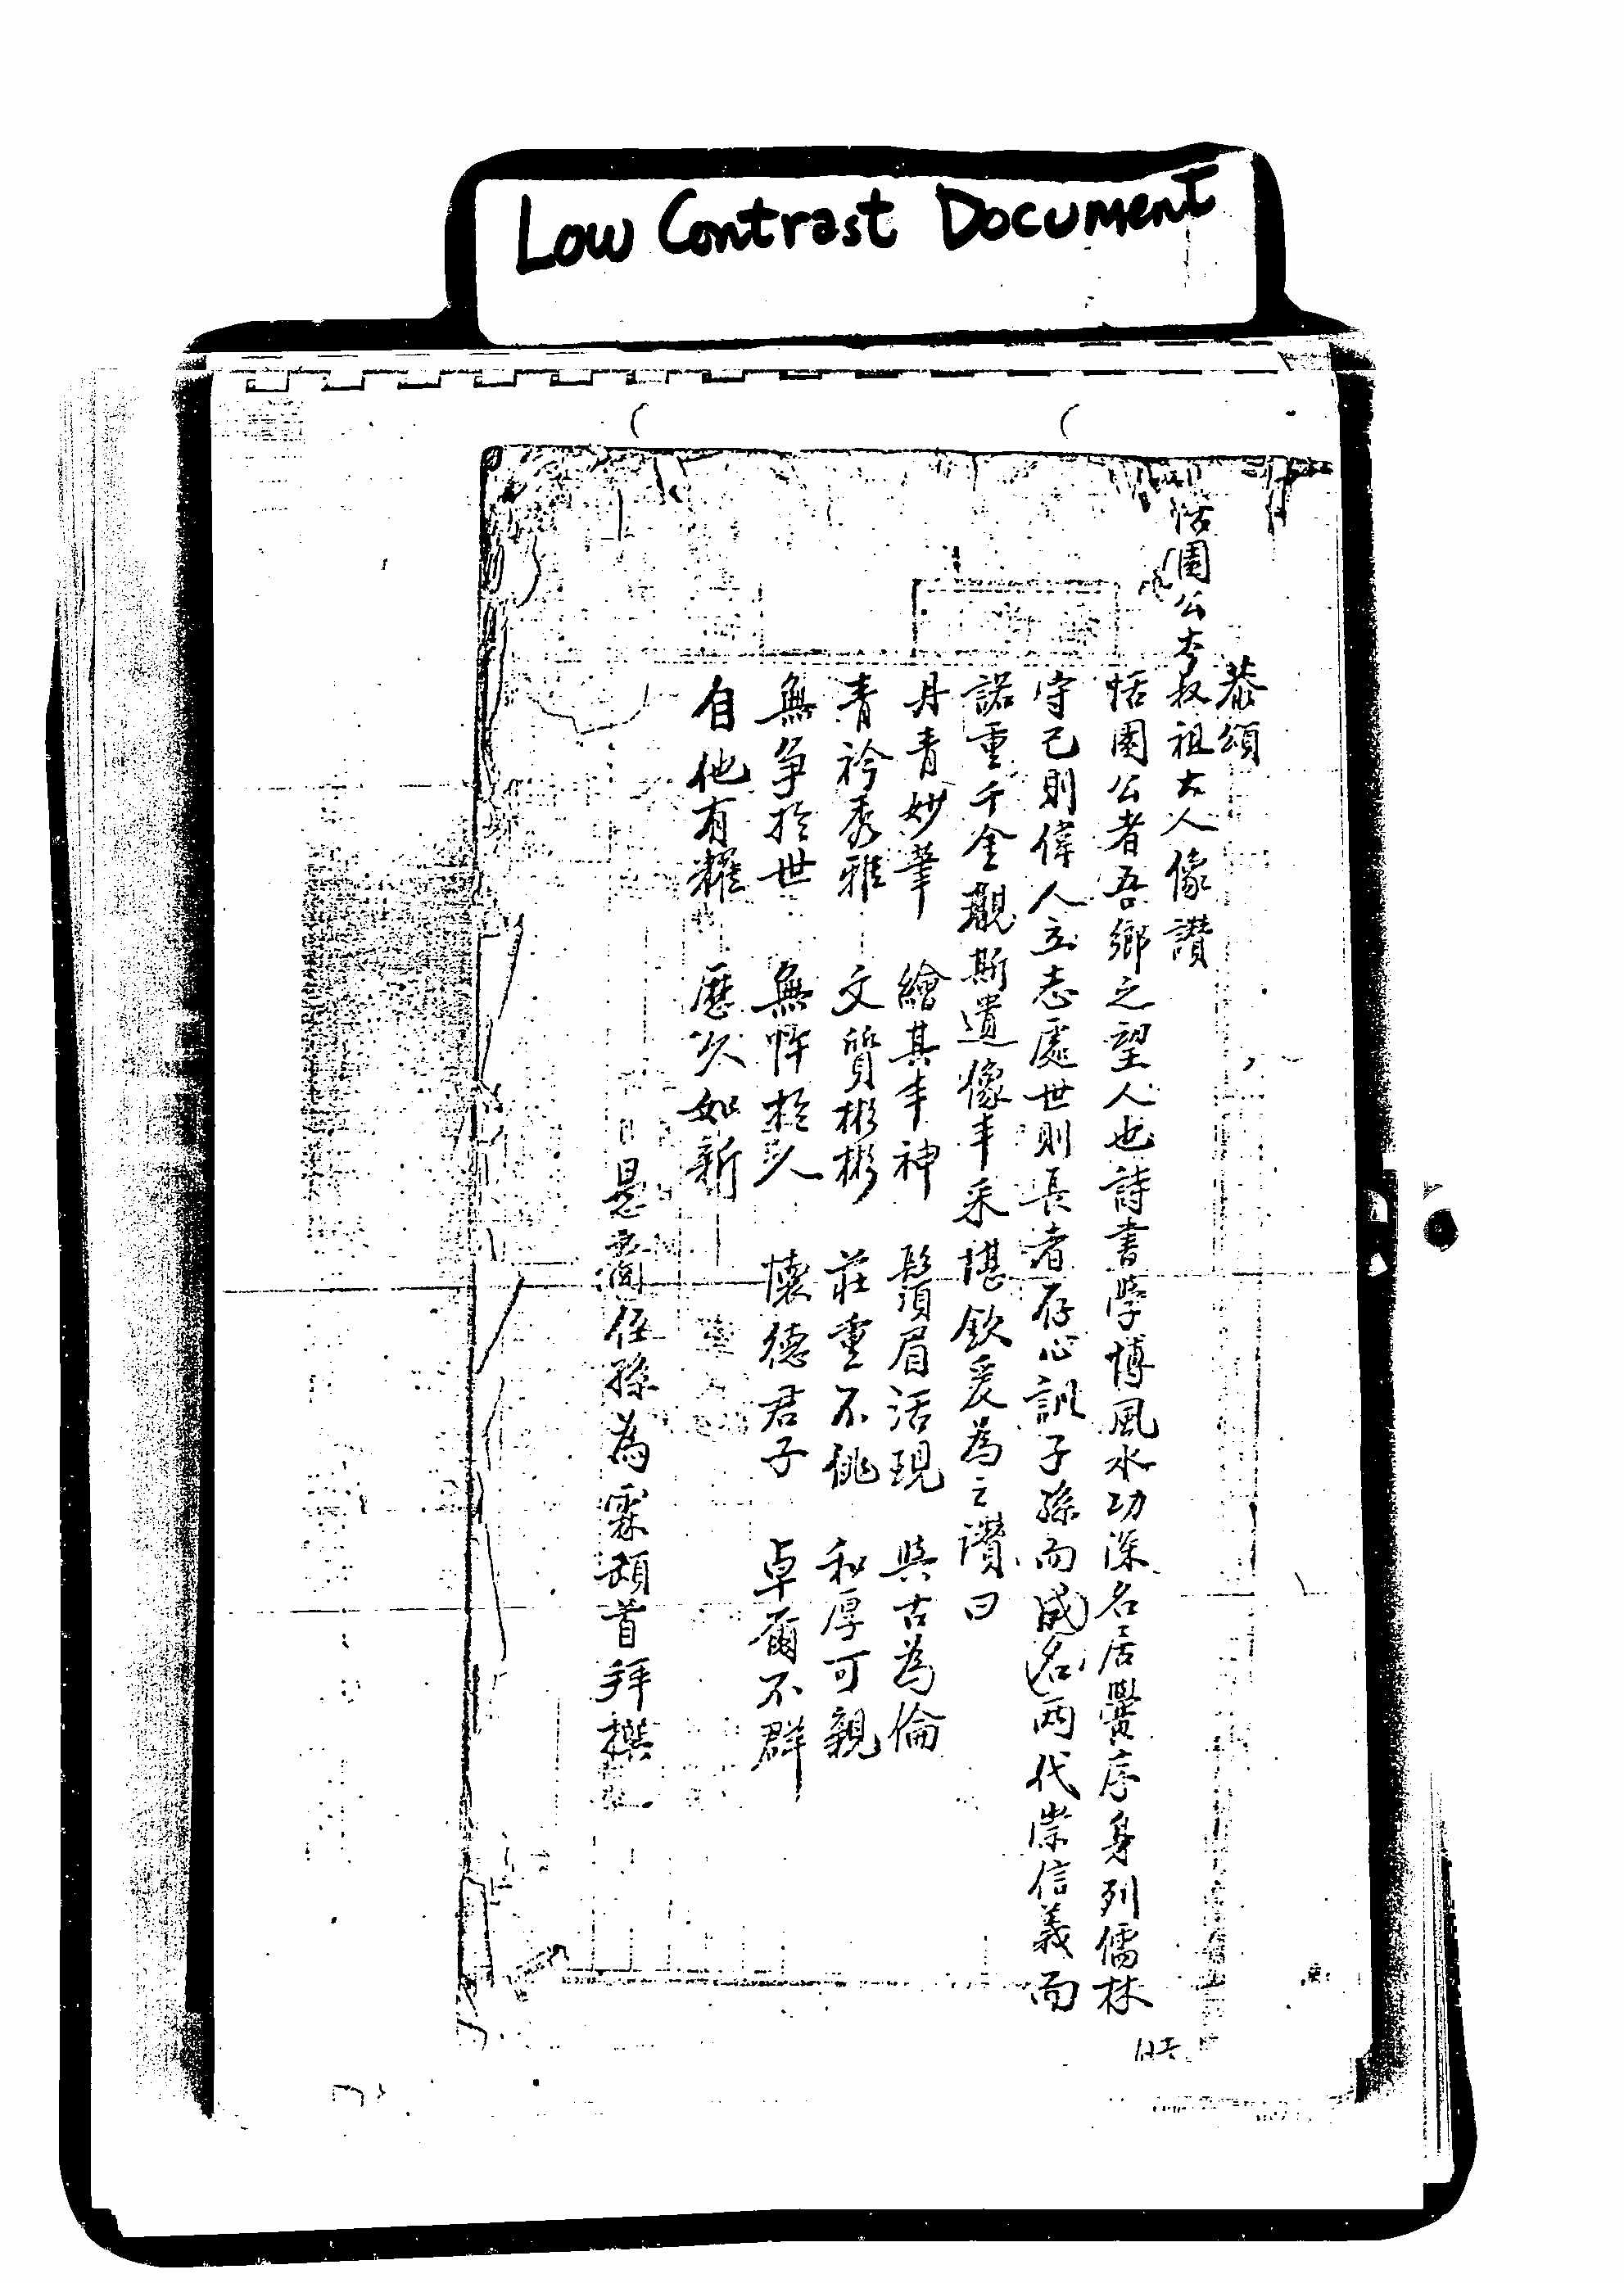 Low Contrast Document
恭頌
恬園公本叔祖大人像讚
恬園公者吾鄉之望人也詩書學博風水功深名居黌序身列儒林
守己則偉人立志處世則長者存心訓子孫而成名兩代崇信義而
諾重千金觀斯遺像丰采堪欽爰為之讚曰
丹青妙筆 繪其丰神 鬚眉活現 與古為倫
青衿秀雅 文質彬彬 莊重不佻 和厚可親
無爭於世 無忤於人 懷德君子 卓爾不群
自他有耀 歷久如新
侄孫為霖頓首拜撰